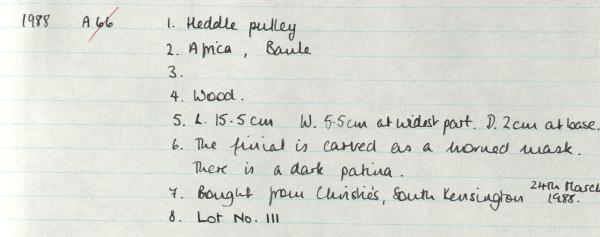 1988 A 66 1. Heddle pulley
2. Africa, Baule
3.
4. Wood.
5. L. 15.5cm W. 5.5cm at widest part. D. 2cm at base.
6. The finial is carved as a horned mask.
There is a dark patina.
7. Bought from Christie's, South Kensington 24th March 1988.
8. Lot No. 111